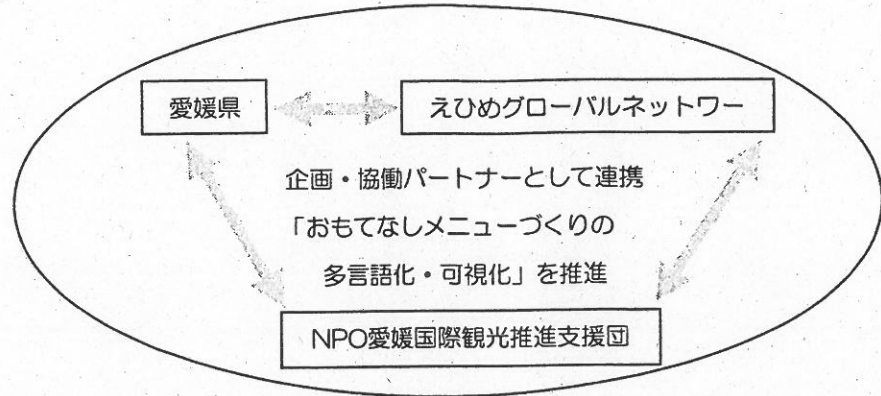 愛媛県
えひめグローバルネットワー
企画・協働パートナーとして連携
「おもてなしメニューづくりの
多言語化・可視化」を推進
NPO愛媛国際観光推進支援団